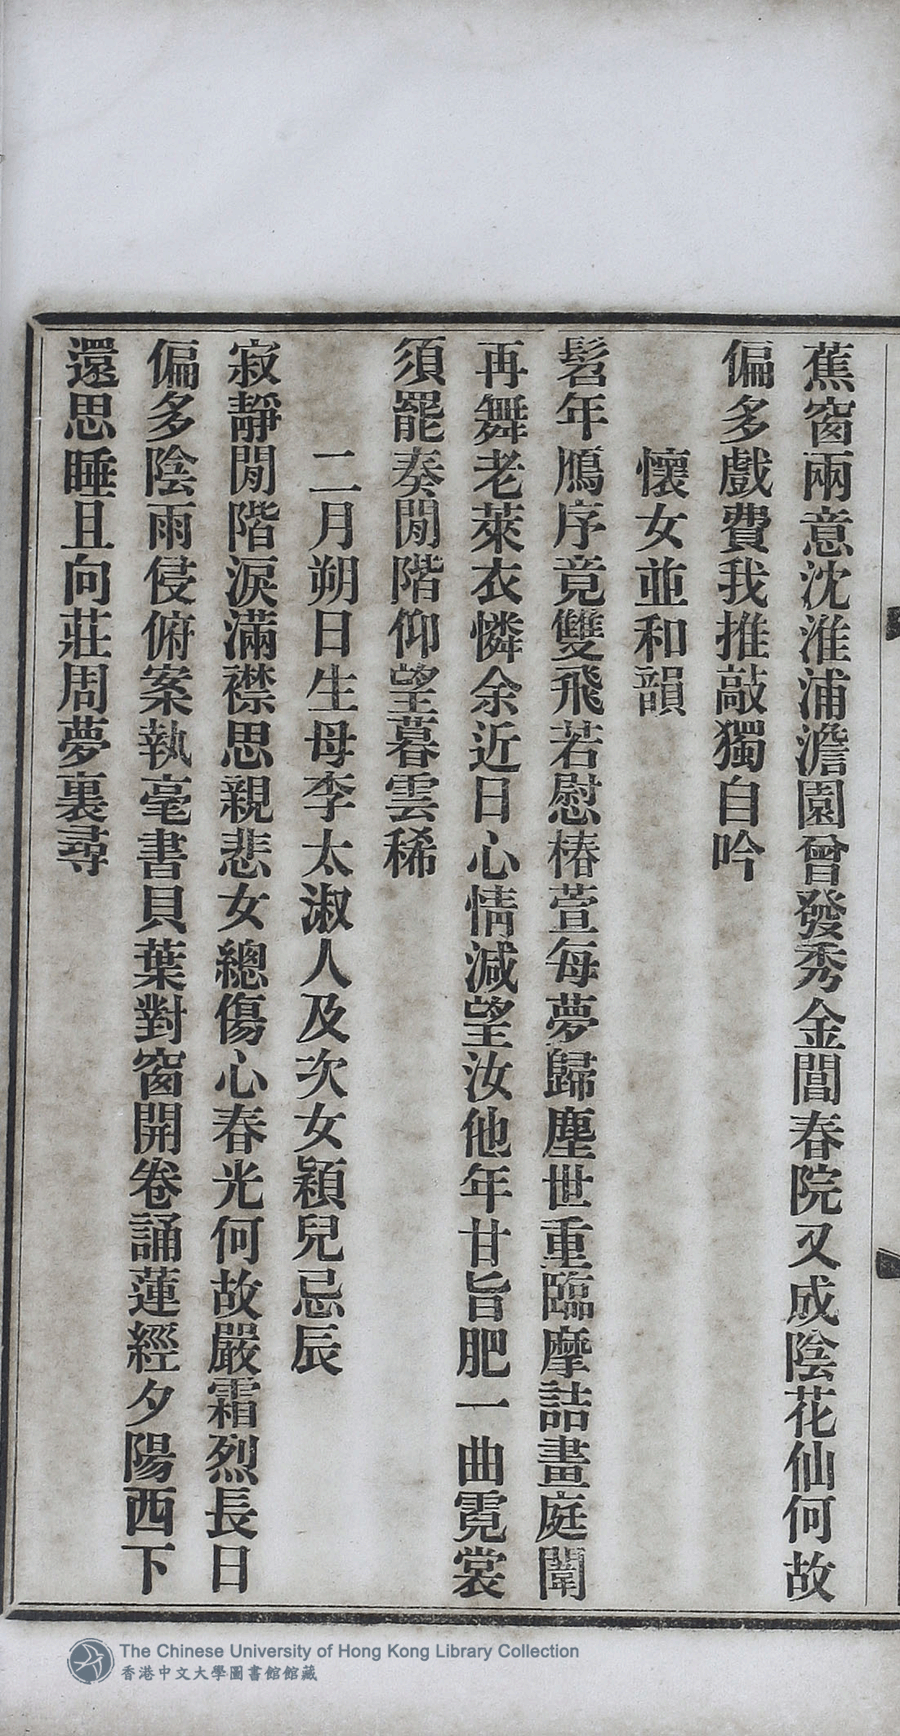 蕉窗兩意沈淮浦澹園曾發秀金閶春院又成陰花仙何故
偏多戲費我推敲獨自吟
懷女並和韻
髫年鴈序竟雙飛若慰椿萱每夢歸塵世重臨摩詰畫庭闈
再舞老萊衣憐余近日心情減望汝他年甘旨肥一曲霓裳
須罷奏閒階仰望暮雲稀
二月朔日生母李太淑人及次女穎兒忌辰
寂靜閒階淚滿襟思親悲女總傷心春光何故嚴霜烈長日
偏多陰雨侵俯案執毫書貝葉對窗開卷誦蓮經夕陽西下
還思睡且向莊周夢裏尋
The Chinese University of Hong Kong Library Collection
香港中文大學圖書館館藏